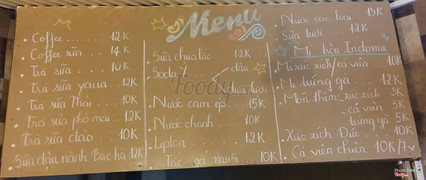 Menu
Coffee ........ 12K
Coffee sữa .... 14K
Trà sữa ....... 10K
Trà sữa yaua ... 12K
Trà sữa Thái ... 10K
Trà sữa phô mai 12K
Trà sữa dào 10K
Sữa đậu nành Bắc hà 12K
Sữa chua lắc 12K
Soda
dâu
dưa lưới
Nước cam ép 15K
Nước chanh 10K
Lipton 12K
Tắc xí muội 10K
Nước các loại 13K
Sữa tươi 12K
Mì trộn Indomie
Mì xúc xích/cá viên
Mì trứng gà 12K
Món thêm: xúc xích 3K
cá viên 5K
trứng gà 5K
Xúc xích Đức 10K
Cá viên chiên 10K/7v
Foody